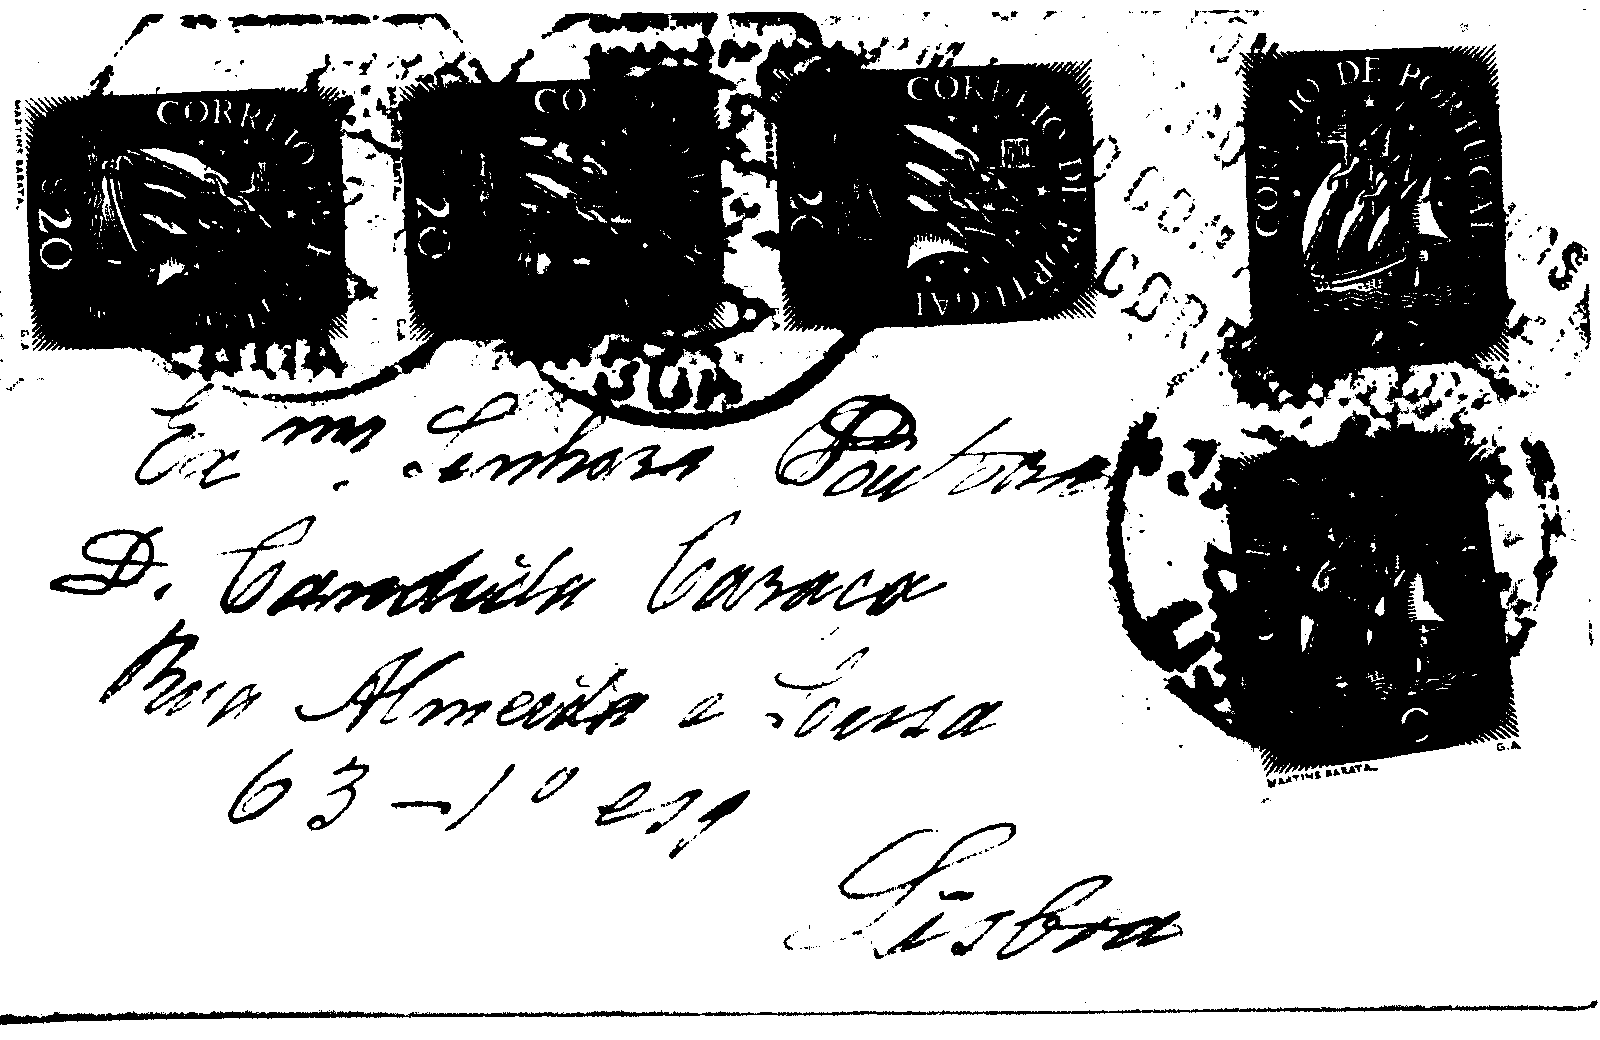 CORREIO
$20
MARTINS BARATA.
CO
20
CORREIO DE PORTUGAL
CORREIO DE PORTUGAL
Ex.ma Senhora Doutora
D. Candida Caraça
Rua Almeida e Sousa
63-1º esq
Lisboa
MARTINS BARATA
G.A